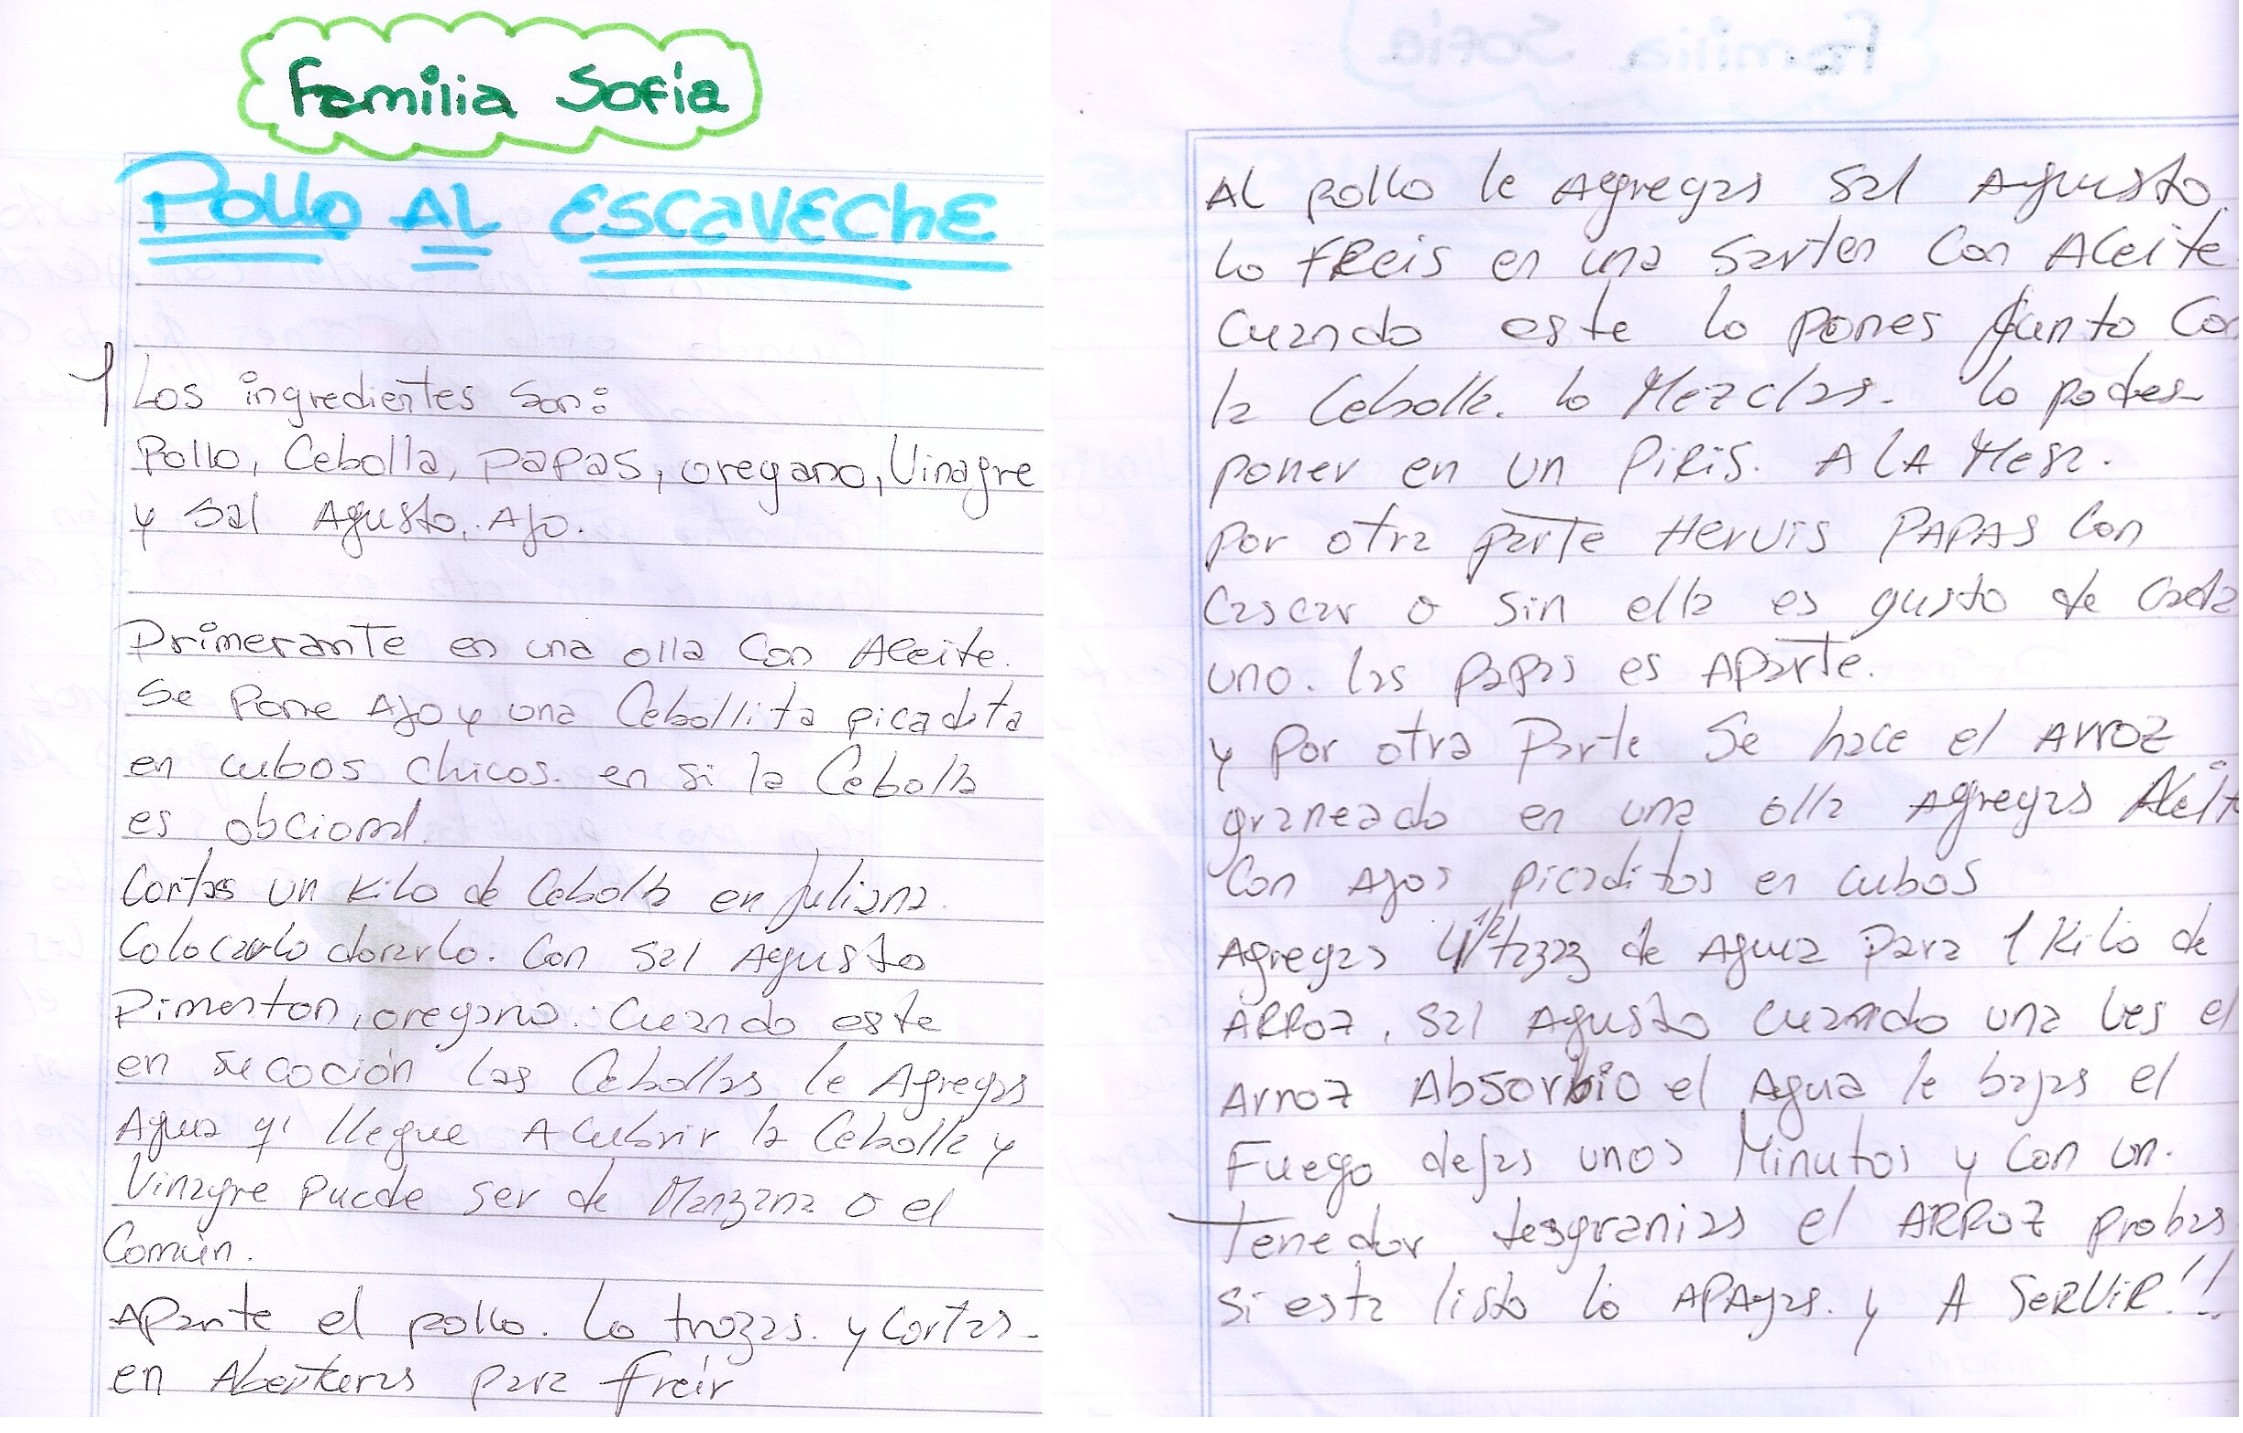 Familia Sofía
Pollo Al Escaveche
Los ingredientes son:
Pollo, Cebolla, papas, oregano, Vinagre
y Sal Agusto, Ajo.
Primerante en una olla Con Aceite.
Se Pone Ajo y una Cebollita picadita
en cubos chicos. en si la Cebolla
es obcional.
Cortas un Kilo de Cebolla en juliana.
Colocarlo dorarlo. Con sal Agusto
Pimenton, oregano. Cuando este
en su coción las Cebollas le Agregas
Agua q' llegue A cubrir la Cebolla y
Vinagre puede ser de Manzana o el
Común.
Aparte el pollo. Lo trozas. y Cortas
en para freír
Al pollo le Agregas sal Agusto
lo FReis en una Sarten Con Aceite
Cuando este lo pones junto Con
la Cebolla. lo Mezclas. lo podes
poner en un PiRis. A lA Mesa.
por otra parte Hervis PAPAS Con
Cascar o sin ella es gusto de Cada
uno. las papas es Aparte.
y Por otra Parte Se hace el Arroz
graneado en una olla Agregas Aceite
Con Ajos picaditos en cubos
Agregas 4 1/2 tazas de Agua Para 1 Kilo de
ARRoz, sal Agusto cuando una ves el
Arroz Absorbio el Agua le bajas el
Fuego dejas unos Minutos y Con un.
Tenedor desgranias el ARRoz probas
si esta listo lo APAgas. y A SeRViR!!